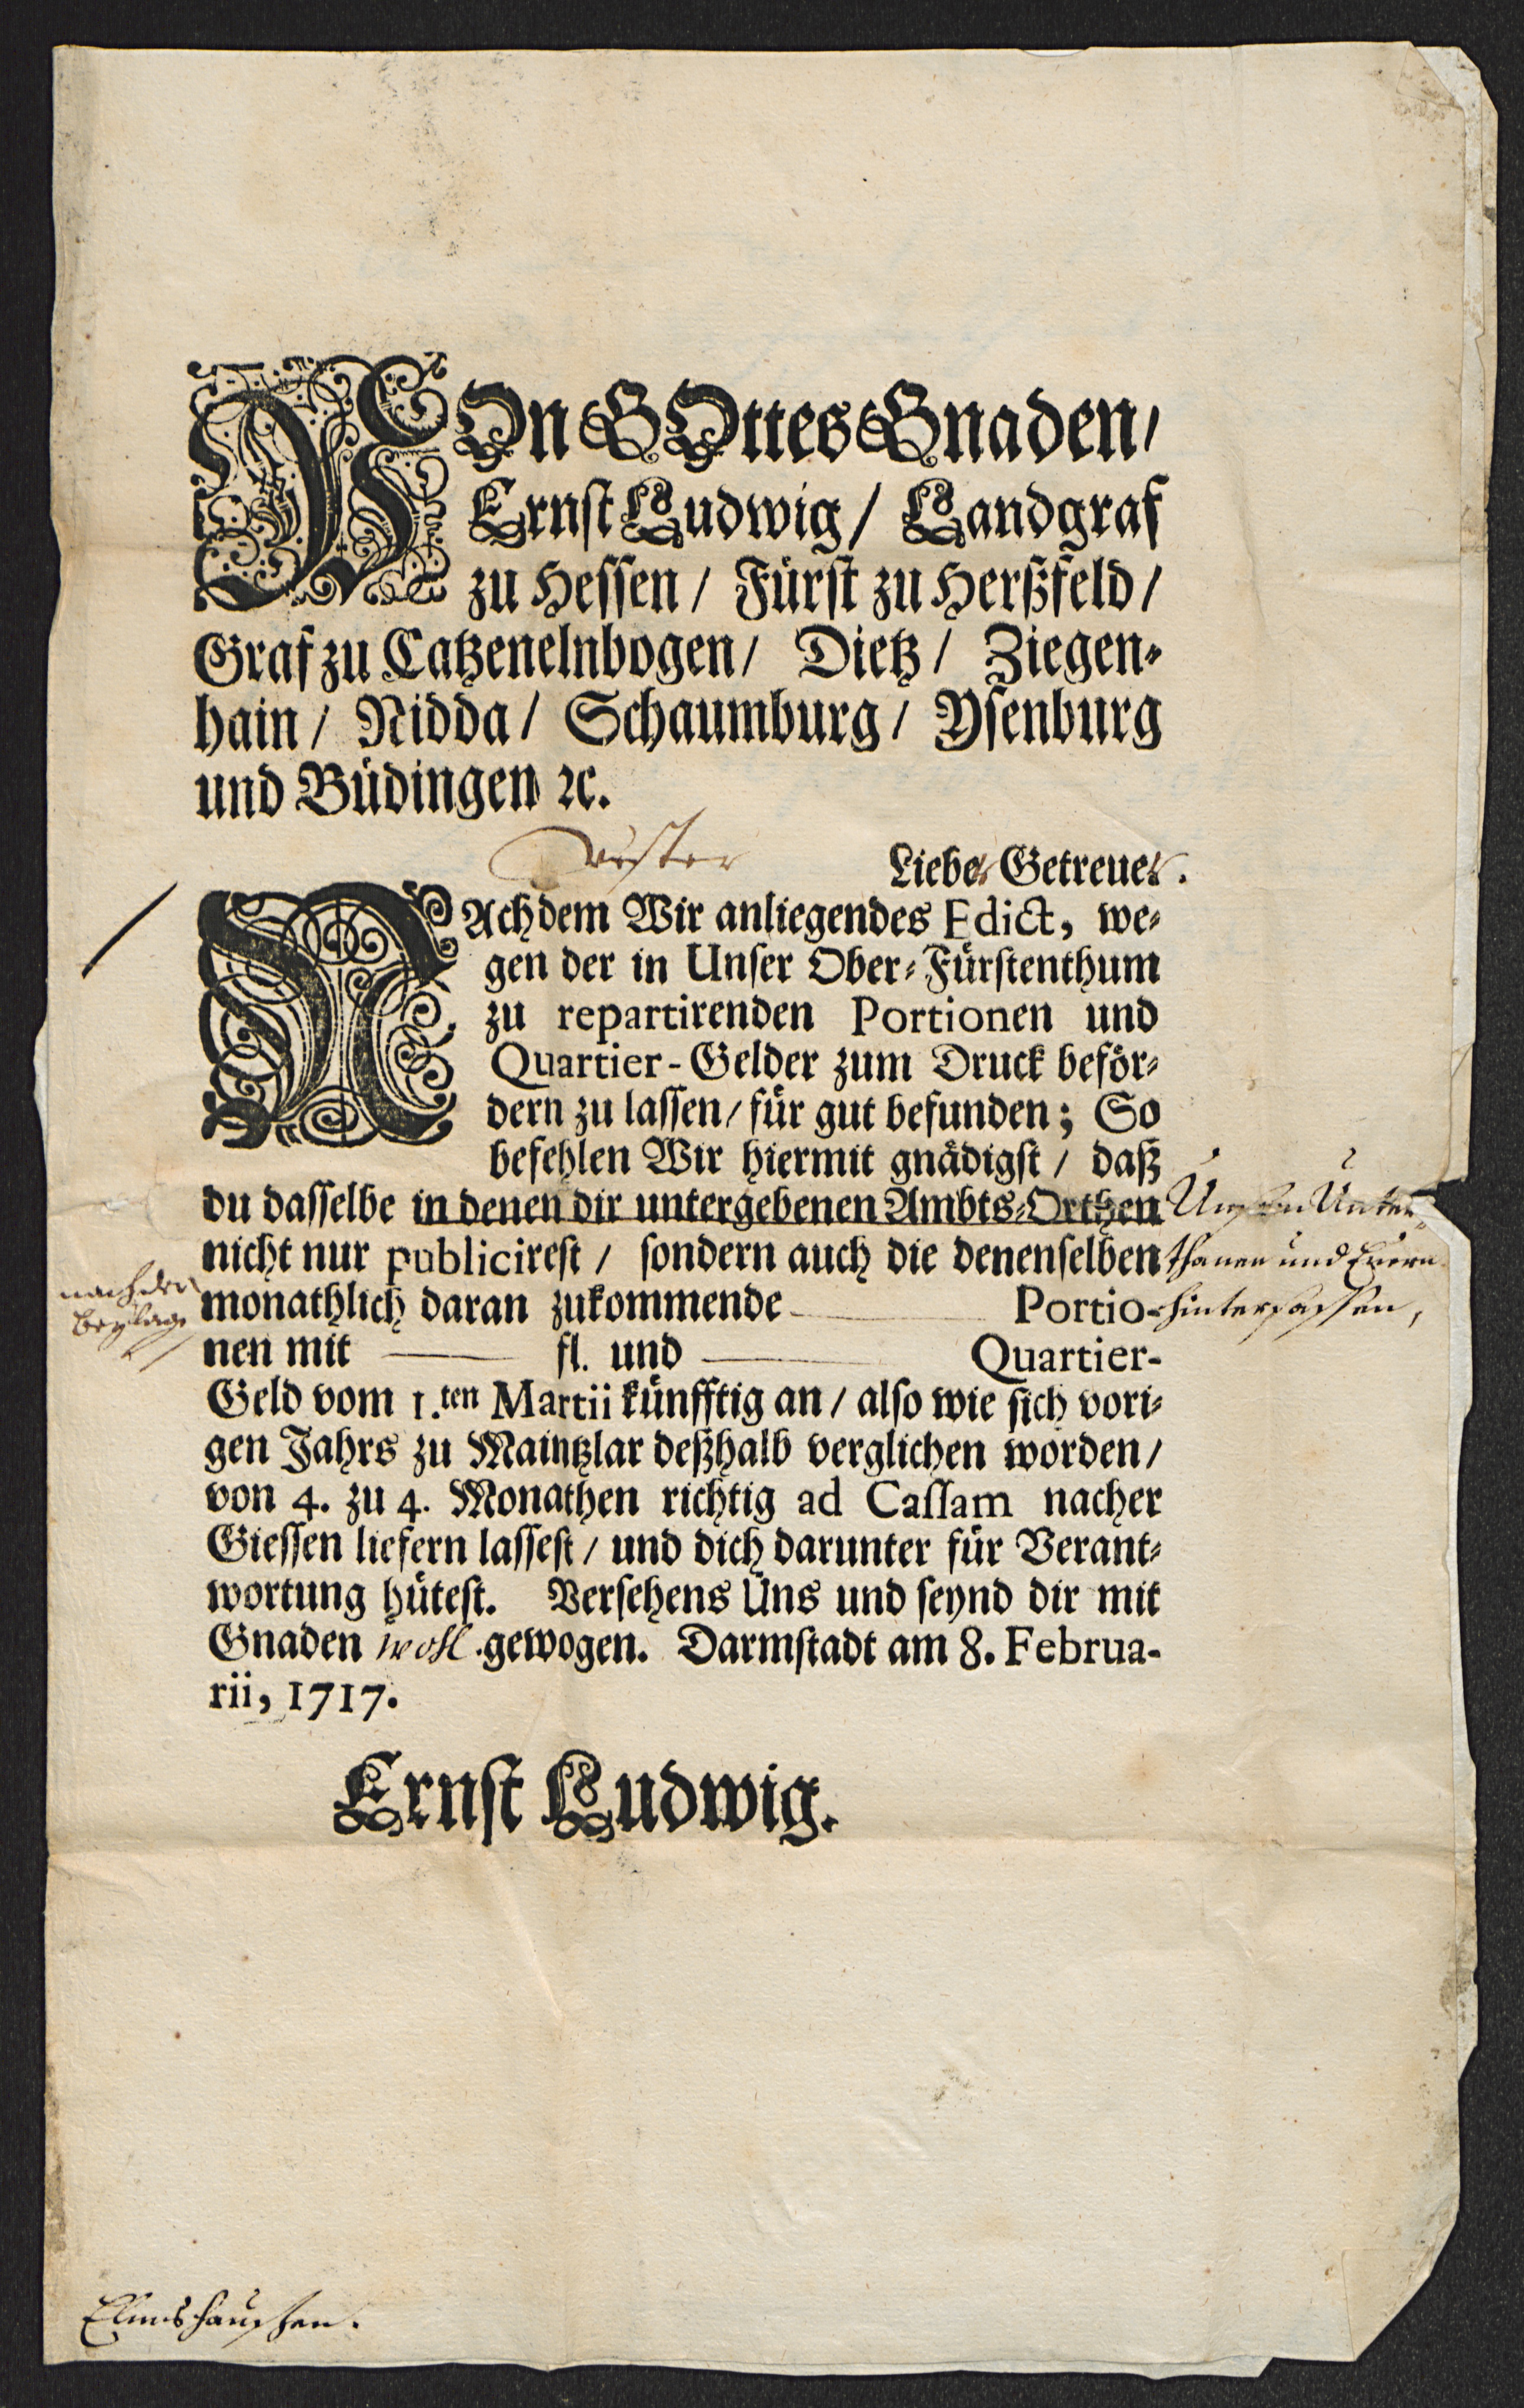 VOn GOttes Gnaden/
Ernst Ludwig/ Landgraf
zu Hessen/ Fürst zu Herßfeld/
Graf zu Catzenelnbogen/ Dietz/ Ziegen-
hain/ Nidda/ Schaumburg/ Ysenburg
und Büdingen ꝛc.
Liebe Getreue.
NAchdem Wir anliegendes Edict, we-
gen der in Unser Ober-Fürstenthum
zu repartirenden Portionen und
Quartier-Gelder zum Druck beför-
dern zu lassen/ für gut befunden; So
befehlen Wir hiermit gnädigst/ daß
du dasselbe in denen dir untergebenen Ambts-Orthen Unsern Unter-
nicht nur publicirest/ sondern auch die denenselben thanen und Euern
nach der
Beylag
monathlich daran zukommende Portio- hintersassen,
nen mit fl. und Quartier-
Geld vom 1.ten Martii künfftig an/ also wie sich vori-
gen Jahrs zu Maintzlar deßhalb verglichen worden/
von 4. zu 4. Monathen richtig ad Cassam nacher
Giessen liefern lassest/ und dich darunter für Verant-
wortung hütest. Versehens Uns und seynd dir mit
Gnaden wohl gewogen. Darmstadt am 8. Februa-
rii, 1717.
Ernst Ludwig.
Elmshaußen.